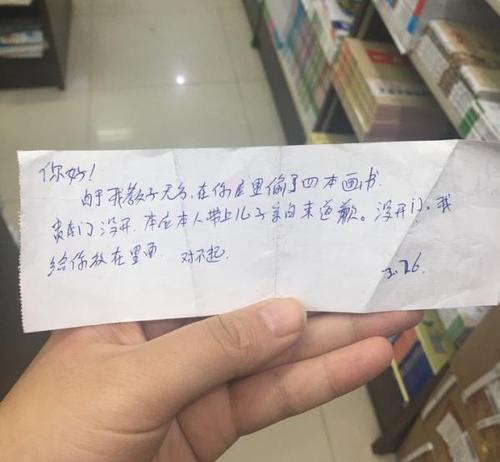 你好!
由于我教子无方,在你店里偷了四本画书.
贵店门没开.本应本人带上儿子亲自来道歉。没开门,我
给你放在里面 对不起.
3.26.